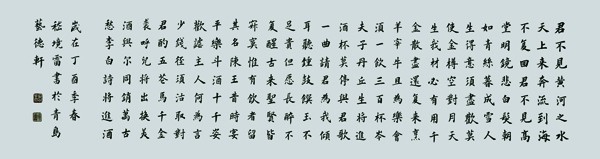 君不見黄河之水
天上来奔流到海
不復回君不見高
堂明鏡悲白髮朝
如青絲暮成雪人
生得意須盡歡莫
使金樽空對月天
生我材必有用千
金散盡還復来烹
羊宰牛且為樂會
須一飲三百杯岑
夫子丹丘生將進
酒杯莫停與君歌
一曲請君為我傾
耳聽鐘鼓饌玉不
足貴但愿長醉不
復醒古来聖賢皆
寂寞惟有飲者留
其名陳王昔時宴
平樂斗酒十千恣
歡謔主人何為言
少錢徑須沽取對
君酌五花馬千金
裘呼兒將出換美
酒與尔同銷萬古
愁李白詩將進酒
歲在丁酉季春
嵇境雷書於青島
藝德軒